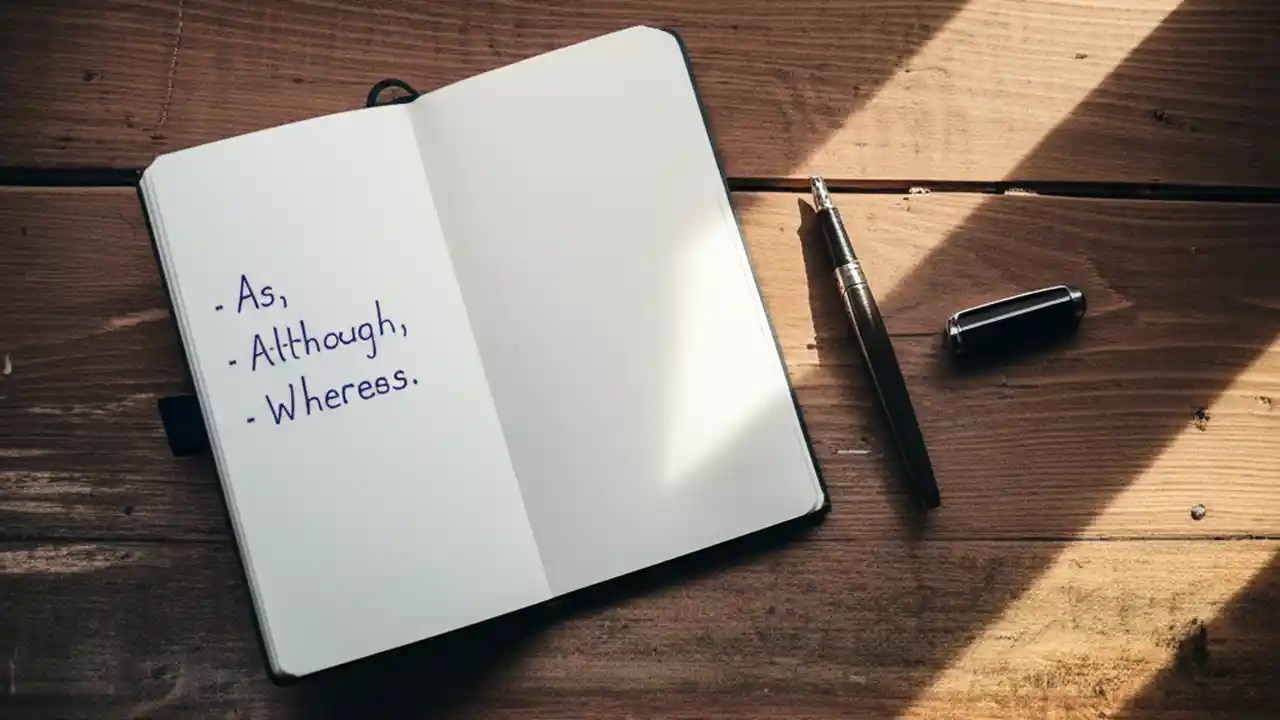 - As,
- Although,
- Wheress.